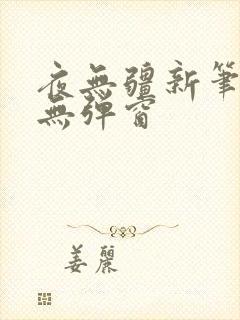 夜無疆新筆
無彈窗
姜麗